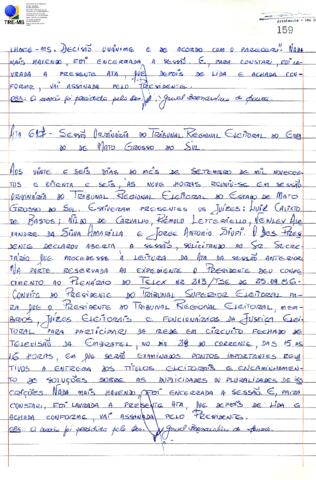 TRE-MS
159
LHÃES-MS. DECISÃO UNÂNIME E DE ACORDO COM O PARECER. NADA
MAIS HAVENDO, FOI ENCERRADA A SESSÃO. E, PARA CONSTAR, FOI LA-
VRADA A PRESENTE ATA, QUE DEPOIS DE LIDA E ACHADA CON-
FORME, VAI ASSINADA PELO PRESIDENTE.
OBS: O
ATA SESSÃO ORDINÁRIA DO TRIBUNAL REGIONAL ELEITORAL DO ESTA
DO DE MATO GROSSO DO SUL.
AOS VINTE E SEIS DIAS DO MÊS DE SETEMBRO DE MIL NOVECEN-
TOS E OITENTA E SEIS, ÀS NOVE HORAS REUNIU-SE EM SESSÃO
ORDINÁRIA DO TRIBUNAL REGIONAL ELEITORAL DO ESTADO DE MATO
GROSSO DO SUL. ESTIVERAM PRESENTES OS JUÍZES: LUIZ CALIXTO
DE BASTOS; NILDO DE CARVALHO, RÊMOLO LETTERIELLO, HENLEY ALE
XANDRE DA SILVA AMARILLA E JORGE ANTONIO SIUFI. O DES. PRESI
DENTE DECLAROU ABERTA A SESSÃO, SOLICITANDO AO SR. SECRE-
TÁRIO QUE PROCEDESSE À LEITURA DA ATA DA SESSÃO ANTERIOR.
NA PARTE RESERVADA AO EXPEDIENTE O PRESIDENTE DEU CONHE-
CIMENTO AO PLENÁRIO DO TELEX Nº 213/TSE DE 25.09.86-
CONVITE DO PRESIDENTE DO TRIBUNAL SUPERIOR ELEITORAL PA
RA QUE O PRESIDENTE DO TRIBUNAL REGIONAL ELEITORAL, MEM-
BROS, JUÍZES ELEITORAIS E FUNCIONÁRIOS DA JUSTIÇA ELEI-
TORAL PARA PARTICIPAR DA REDE EM CIRCUITO FECHADO DE
TELEVISÃO DA EMBRATEL, NO DIA 29 DO CORRENTE, DAS 15 ÀS
16 HORAS, EM QUE SERÃO EXAMINADOS PONTOS IMPORTANTES RELA-
TIVOS À ENTREGA DOS TÍTULOS ELEITORAIS E ENCAMINHAMEN-
TO DE SOLUÇÕES SOBRE AS DUPLICIDADES OU PLURALIDADES DE INS-
CRIÇÕES. NADA MAIS HAVENDO, FOI ENCERRADA A SESSÃO E, PARA
CONSTAR, FOI LAVRADA A PRESENTE ATA, QUE DEPOIS DE LIDA E
ACHADA CONFORME, VAI ASSINADA PELO PRESIDENTE.
OBS: O